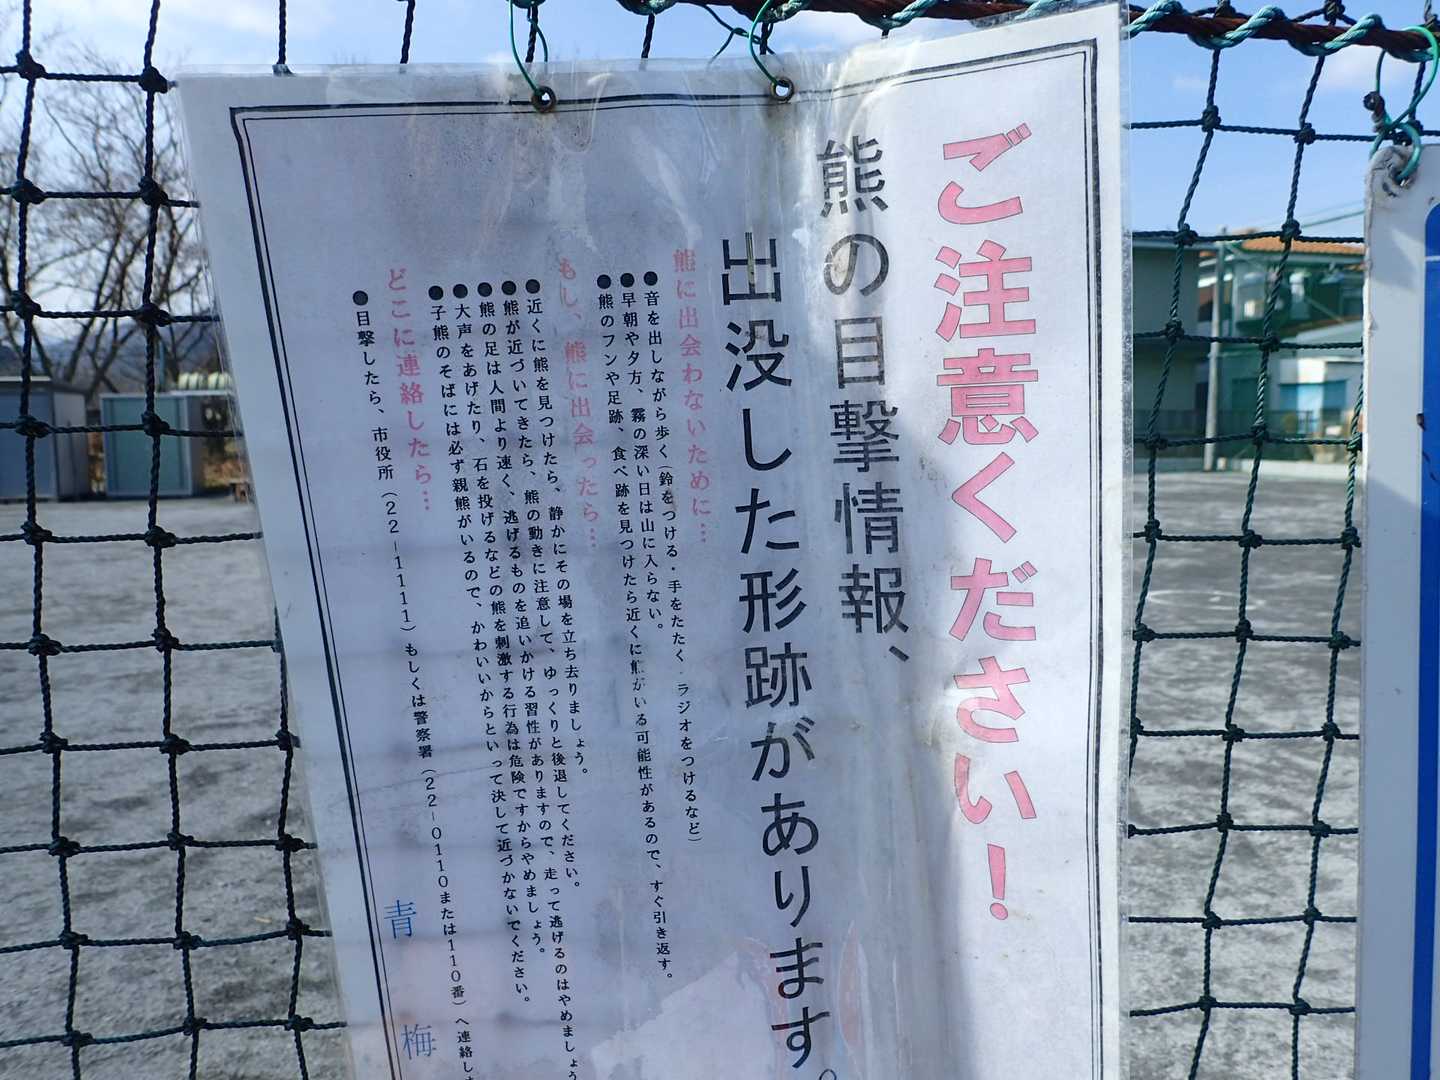 ご注意ください!
熊の目撃情報、
出没した形跡があります。
熊に出会わないために…
●音を出しながら歩く(鈴をつける・手をたたく・ラジオをつけるなど)
●早朝や夕方、霧の深い日は山に入らない。
●熊のフンや足跡、食べ跡を見つけたら近くに熊がいる可能性があるので、すぐ引き返す。
もし、熊に出会ったら…
●近くに熊を見つけたら、静かにその場を立ち去りましょう。
●熊が近づいてきたら、熊の動きに注意して、ゆっくりと後退してください。
●熊の足は人間より速く、逃げるものを追いかける習性がありますので、走って逃げるのはやめましょう
●大声をあげたり、石を投げるなどの熊を刺激する行為は危険ですからやめましょう。
●子熊のそばには必ず親熊がいるので、かわいいからといって決して近づかないでください。
どこに連絡したら…
●目撃したら、市役所(22-1111)もしくは警察署(22-0110または110番)へ連絡し
青梅